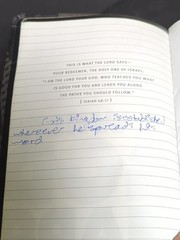 THIS IS WHAT THE LORD SAYS—
YOUR REDEEMER, THE HOLY ONE OF ISRAEL:
"I AM THE LORD YOUR GOD, WHO TEACHES YOU WHAT
IS GOOD FOR YOU AND LEADS YOU ALONG
THE PATHS YOU SHOULD FOLLOW."
[ ISAIAH 48:17 ]
God's Kingdom
wherever he spreads his
word